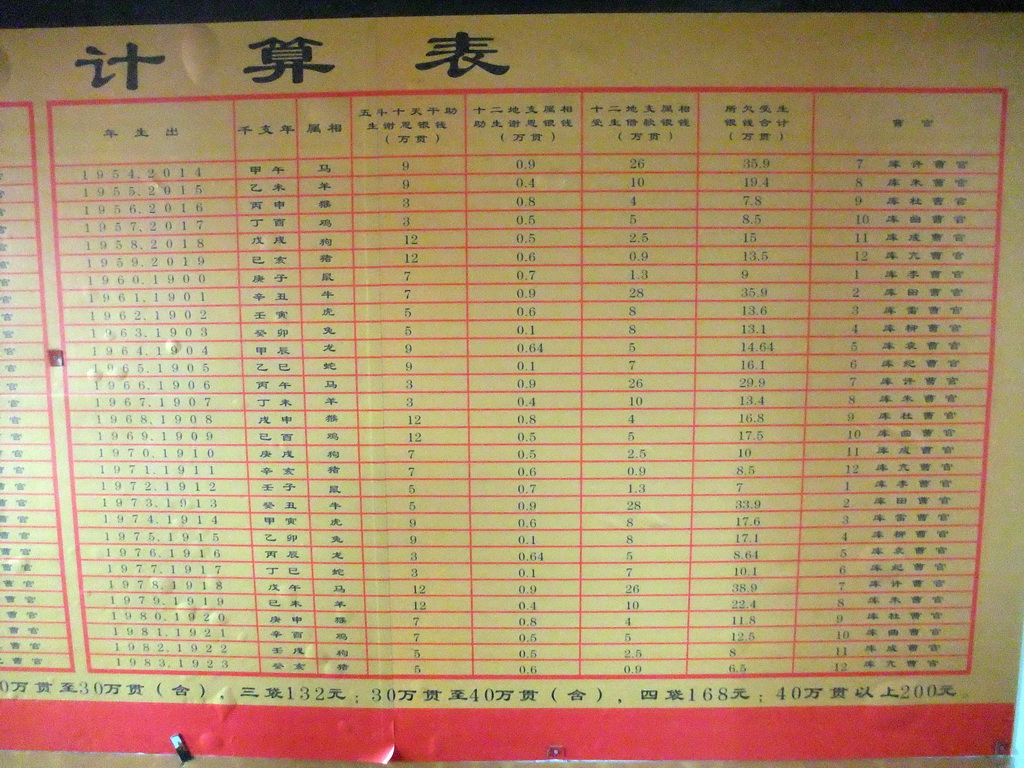 计算表
年生出 干支年 属相 五斗十天干助生谢恩银钱(万贯) 十二地支属相助生谢恩银钱(万贯) 十二地支属相受生借款银钱(万贯) 所欠受生银钱合计(万贯) 曹官
1954.2014 甲午 马 9 0.9 26 35.9 7 库许曹官
1955.2015 乙未 羊 9 0.4 10 19.4 8 库朱曹官
1956.2016 丙申 猴 3 0.8 4 7.8 9 库杜曹官
1957.2017 丁酉 鸡 3 0.5 5 8.5 10 库曲曹官
1958.2018 戊戌 狗 12 0.5 2.5 15 11 库成曹官
1959.2019 已亥 猪 12 0.6 0.9 13.5 12 库亢曹官
1960.1900 庚子 鼠 7 0.7 1.3 9 1 库李曹官
1961.1901 辛丑 牛 7 0.9 28 35.9 2 库田曹官
1962.1902 壬寅 虎 5 0.6 8 13.6 3 库雷曹官
1963.1903 癸卯 兔 5 0.1 8 13.1 4 库柳曹官
1964.1904 甲辰 龙 9 0.64 5 14.64 5 库袁曹官
1965.1905 乙巳 蛇 9 0.1 7 16.1 6 库纪曹官
1966.1906 丙午 马 3 0.9 26 29.9 7 库许曹官
1967.1907 丁未 羊 3 0.4 10 13.4 8 库朱曹官
1968.1908 戊申 猴 12 0.8 4 16.8 9 库杜曹官
1969.1909 已酉 鸡 12 0.5 5 17.5 10 库曲曹官
1970.1910 庚戌 狗 7 0.5 2.5 10 11 库成曹官
1971.1911 辛亥 猪 7 0.6 0.9 8.5 12 库亢曹官
1972.1912 壬子 鼠 5 0.7 1.3 7 1 库李曹官
1973.1913 癸丑 牛 5 0.9 28 33.9 2 库田曹官
1974.1914 甲寅 虎 9 0.6 8 17.6 3 库雷曹官
1975.1915 乙卯 兔 9 0.1 8 17.1 4 库柳曹官
1976.1916 丙辰 龙 3 0.64 5 8.64 5 库袁曹官
1977.1917 丁巳 蛇 3 0.1 7 10.1 6 库纪曹官
1978.1918 戊午 马 12 0.9 26 38.9 7 库许曹官
1979.1919 已未 羊 12 0.4 10 22.4 8 库朱曹官
1980.1920 庚申 猴 7 0.8 4 11.8 9 库杜曹官
1981.1921 辛酉 鸡 7 0.5 5 12.5 10 库曲曹官
1982.1922 壬戌 狗 5 0.5 2.5 8 11 库成曹官
1983.1923 癸亥 猪 5 0.6 0.9 6.5 12 库亢曹官
0万贯至30万贯(含),三袋132元;30万贯至40万贯(含),四袋168元;40万贯以上200元。